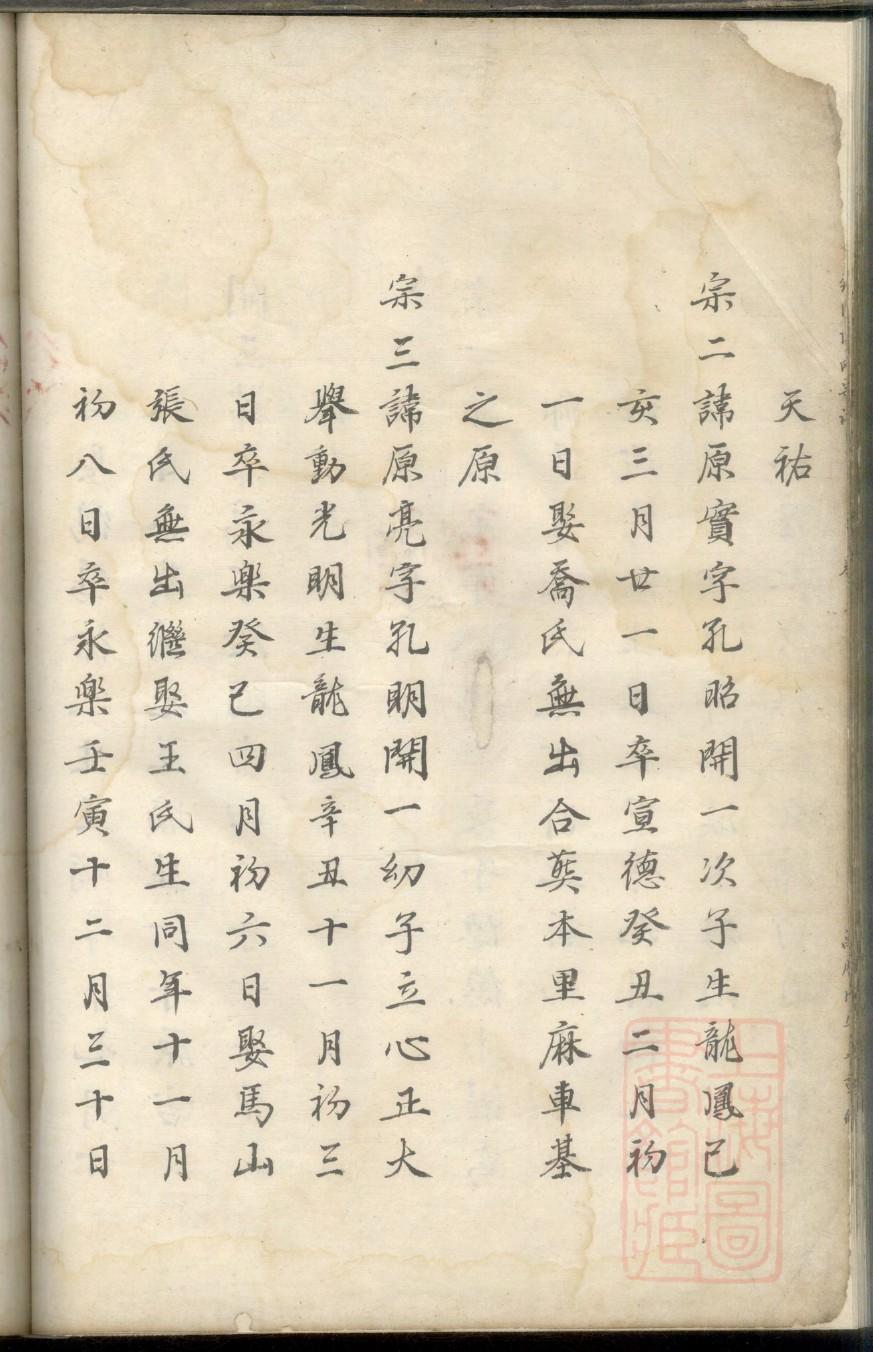 天祐
宗二諱原實字孔昭開一次子生龍鳳己
亥三月廿一日卒宣德癸丑二月初
一日娶喬氏無出合葬本里麻車基
之原
宗三諱原亮字孔明開一幼子立心正大
舉動光明生龍鳳辛丑十一月初三
日卒永樂癸巳四月初六日娶馬山
張氏無出繼娶王氏生同年十一月
初八日卒永樂壬寅十二月三十日
上海圖
書館藏